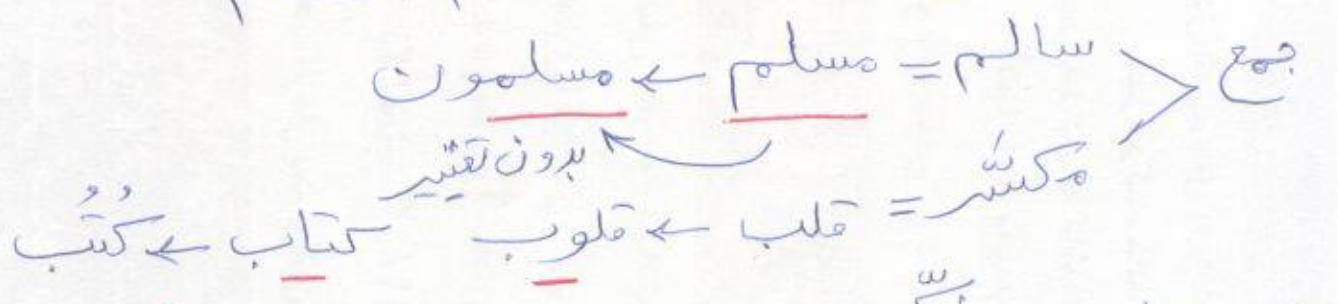 جمع
سالم = مسلم ← مسلمون
بدون تغییر
مکسّر = قلب ← قلوب کتاب ← کُتُب